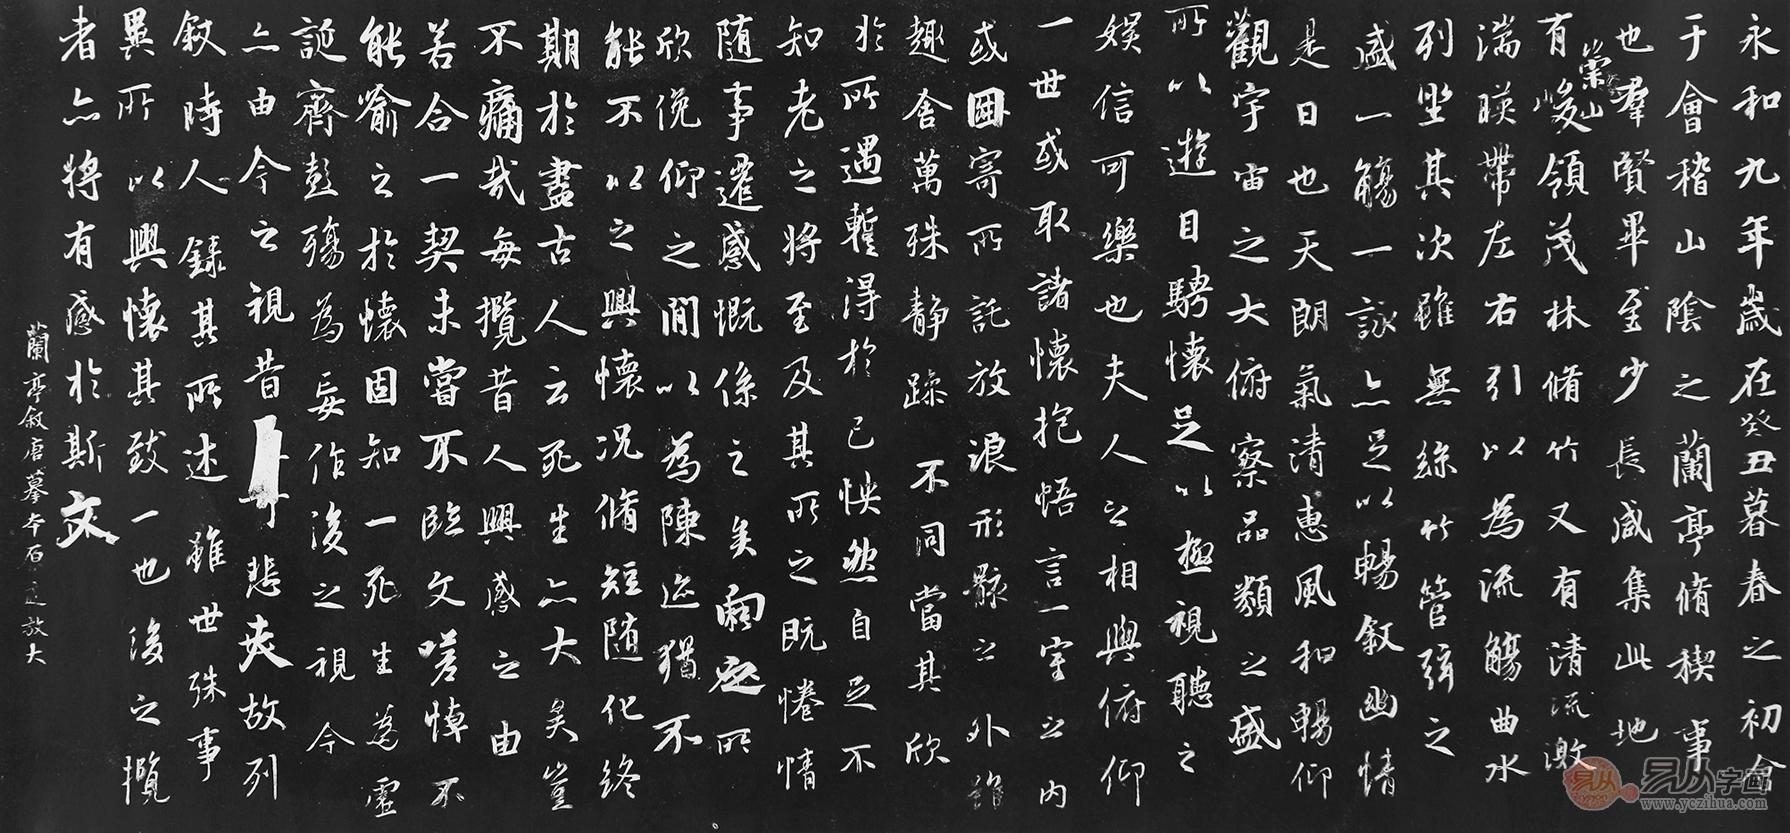 永和九年歲在癸丑暮春之初會
于會稽山陰之蘭亭脩稧事
也羣賢畢至少長咸集此地
有崇山峻領茂林脩竹又有清流激
湍暎帶左右引以為流觴曲水
列坐其次雖無絲竹管弦之
盛一觴一詠亦足以暢敘幽情
是日也天朗氣清惠風和暢仰
觀宇宙之大俯察品類之盛
所以遊目騁懷足以極視聽之
娛信可樂也夫人之相與俯仰
一世或取諸懷抱悟言一室之內
或因寄所託放浪形骸之外雖
趣舍萬殊靜躁不同當其欣
於所遇暫得於己怏然自足不
知老之將至及其所之既惓情
隨事遷感慨係之矣向之所
欣俛仰之閒以為陳迹猶不
能不以之興懷況脩短隨化終
期於盡古人云死生亦大矣豈
不痛哉每攬昔人興感之由
若合一契未嘗不臨文嗟悼不
能喻之於懷固知一死生為虛
誕齊彭殤為妄作後之視今
亦由今之視昔悲夫故列
敘時人錄其所述雖世殊事
異所以興懷其致一也後之攬
者亦將有感於斯文
蘭亭敘唐摹本石放大
易从
易从字画
www.yczihua.com